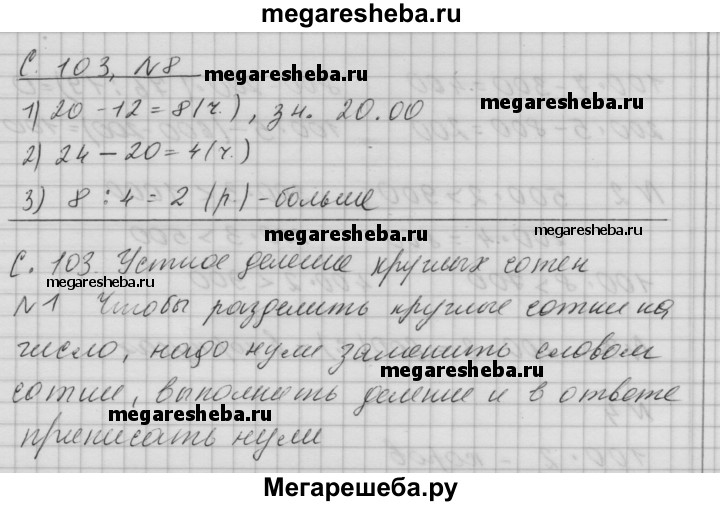 megaresheba.ru
С. 103, №8
megaresheba.ru
1) 20 - 12 = 8 (ч.), зн. 20.00
megaresheba.ru
2) 24 - 20 = 4 (ч.)
3) 8 : 4 = 2 (р.) - больше
megaresheba.ru
megaresheba.ru
С. 103 Устное деление круглых сотен
№1 Чтобы разделить круглые сотни на
число, надо нули заменить словом
megaresheba.ru
сотни, выполнить деление и в ответе
megaresheba.ru
приписать нули
Мегарешеба.ру